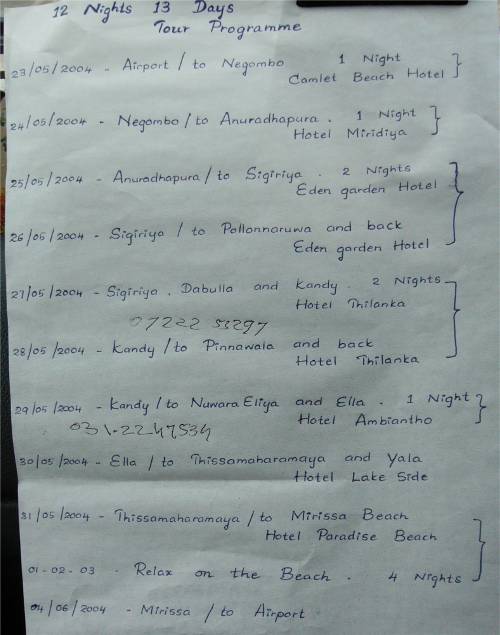 12 Nights 13 Days
Tour Programme
23/05/2004 - Airport / to Negombo 1 Night
Camlet Beach Hotel
24/05/2004 - Negombo / to Anuradhapura. 1 Night
Hotel Miridiya
25/05/2004 - Anuradhapura / to Sigiriya. 2 Nights
Eden garden Hotel
26/05/2004 - Sigiriya / to Pollonnaruwa and back
Eden garden Hotel
27/05/2004 - Sigiriya. Dabulla and Kandy. 2 Nights
Hotel Thilanka
07222 53297
28/05/2004 - Kandy / to Pinnawala and back
Hotel Thilanka
29/05/2004 - Kandy / to Nuwara Eliya and Ella. 1 Night
Hotel Ambiantho
031.2247534
30/05/2004 - Ella / to Thissamaharamaya and Yala
Hotel Lake Side
31/05/2004 - Thissamaharamaya / to Mirissa Beach
Hotel Paradise Beach
01-02-03 - Relax on the Beach. 4 Nights
04/06/2004 - Mirissa / to Airport